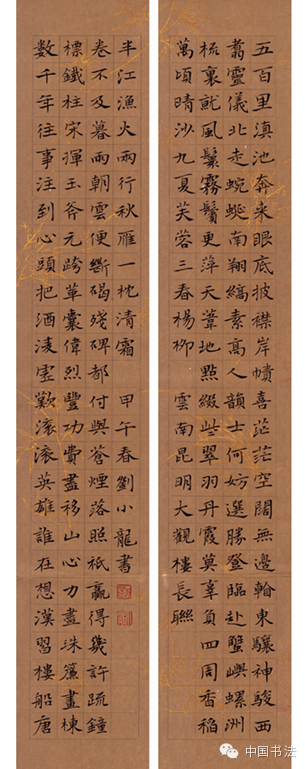 五百里滇池奔来眼底披襟岸幘喜茫茫空闊無邊輪東驤神駿西
翥靈儀北走蜿蜒南翔縞素高人韻士何妨選勝登臨趁蟹嶼螺洲
梳裹就風鬟霧鬢更萍天葦地點綴些翠羽丹霞莫辜負四周香稻
萬頃晴沙九夏芙蓉三春楊柳 雲南昆明大觀樓長聯
數千年往事注到心頭把酒淩虛歎滾滾英雄誰在想漢習樓船唐
標鐵柱宋揮玉斧元跨革囊偉烈豐功費盡移山心力盡珠簾畫棟
卷不及暮雨朝雲便斷碣殘碑都付與蒼煙落照祇贏得幾許疏鐘
半江漁火兩行秋雁一枕清霜 甲午春劉小龍書
中国书法